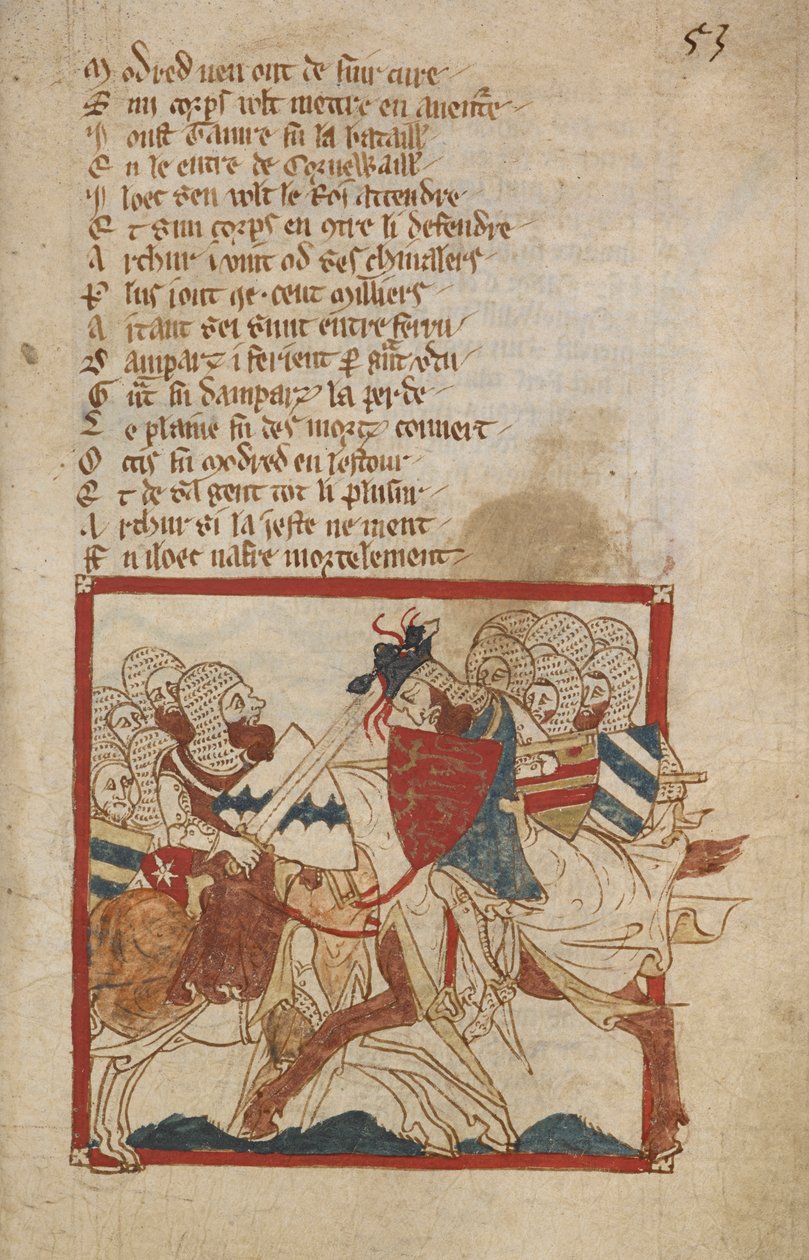 53
Modred nen out de fuir cure
E sun corps volt mettre en auentre
Joust Tanure fu la bataill
En le entre de Cornewaill
Iloec sen volt le Roi attendre
Et sun corps en 9tre li defendre
Arthur i vint od ses chiualers
Plus iout qe cent milliers
Aitant sei sunt entre feru
Dampartz i ferient p gnt
Gnt fu dampartz la perde
Le plaine fu des mortz couuert
Ocis fu modred en lestour
Et de sa gent tot li plusur
Arthur si la jeste ne ment
Fu iloec nafre mortelement